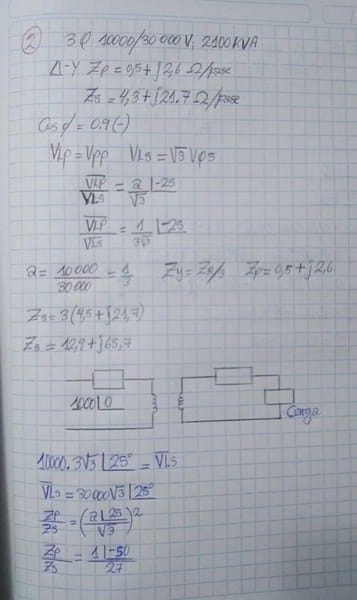 2 3φ 10000/30000 V; 2100 KVA
Δ-Y Zp = 0,5 + j2,6 Ω/fase
Zs = 4,3 + j21.7 Ω/fase
Cos φ = 0.9 (-)
VLp = Vpp VLs = √3 Vφs
VLp/VLs = a/√3 ∟-25
VLp/VLs = 1/3√3 ∟-25
a = 10000/30000 = 1/3 Zy = ZΔ/3 Zp = 0,5 + j2,6
Zs = 3(4,5 + j21,7)
Zs = 12,9 + j65,7
1000∟0
Carga
10000.3√3 ∟25° = VLs
VLs = 30000√3 ∟25°
Zp/Zs = (a∟25/√3)²
Zp/Zs = 1∟-50/27